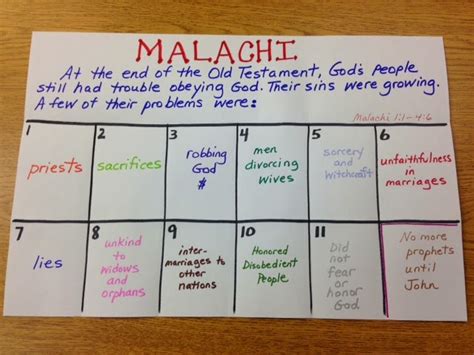 MALACHI
At the end of the Old Testament, God's people
still had trouble obeying God. Their sins were growing.
A few of their problems were:
Malachi 1:1-4:6
1
priests
2
sacrifices
3
robbing
God
$
4
men
divorcing
wives
5
sorcery
and
witchcraft
6
unfaithfulness
in
marriages
7
lies
8
unkind
to
widows
and
orphans
9
inter-
marriages to
other
nations
10
Honored
Disobedient
People
11
Did
not
fear
or
honor
God
No more
prophets
until
John